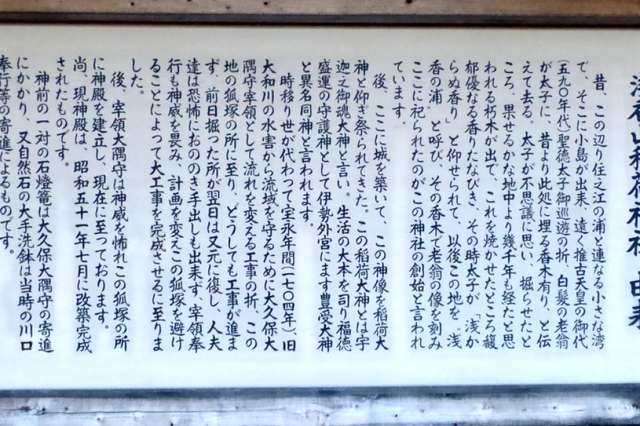 浅香山稲荷神社 由来
昔、この辺り住之江の浦と連なる小さな湾
で、そこに小島が出来、遠く推古天皇の御代
(五九〇年代)聖徳太子御巡遊の折、白髪の老翁
が太子に、昔より此処に埋る香木有り、と伝
えて去る。太子が不思議に思い、掘らせたと
ころ、果せるかな地中より幾千年も経たと思
われる朽木が出て、これを焼かせたところ馥
郁優なる香りたなびき、その時太子が、「浅か
らぬ香り」と仰せられて、以後この地を、「浅
香の浦」と呼び、その香木で老翁の像を刻み
ここに祀られたのがこの神社の創始と言われ
ています。
後、ここに城を築いて、この神像を稲荷大
神と仰ぎ祭られてきた。この稲荷大神とは宇
迦之御魂大神と言い。生活の大本を司り福徳
盛運の守護神として伊勢外宮にます豊受大神
と異名同神と言われます。
時移り世が代わって宝永年間(一七〇四年)、旧
大和川の水害から流域を守るために大久保大
隅守宰領として流れを変える工事の折、この
地の狐塚の所に至り、どうしても工事が進ま
ず、前日掘った所が翌日は又元に復し、人夫
達は恐怖におののき手出しも出来ず、宰領奉
行も神威を畏み、計画を変えこの狐塚を避け
ることによって大工事を完成させるに至りま
した。
後、宰領大隅守は神威を怖れこの狐塚の所
に神殿を建立し、現在に至っております。
尚、現神殿は、昭和五十一年七月に改築完成
されたものです。
神前の一対の石燈篭は大久保大隅守の寄進
にかかり、又自然石の大手洗鉢は当時の川口
奉行等の寄進によるものです。